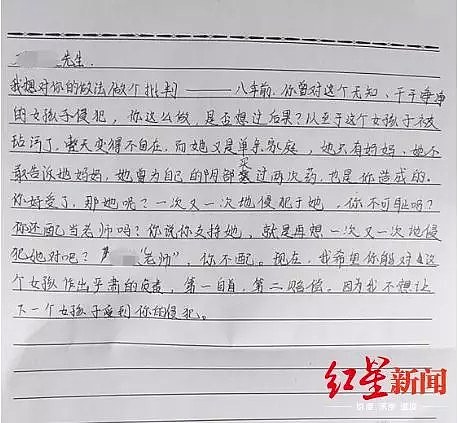 先生.
我想对你的做法做个批判——八年前,你曾对这个无知、干干净净
的女孩子侵犯,你这么做,是否想过后果?以至于这个女孩子不
玷污了,整天变得不自在,而她又是单亲家庭,她只有妈妈,她不
敢告诉她妈妈,她曾为自己的阴部买过两次药,也是你造成的.
你好受了,那她呢?一次又一次地侵犯于她,你不可耻吗?
你还配当老师吗?你说你支持她,就是再想一次又一次地侵
犯她对吧?“老师”,你不配。现在,我希望你能对这
个女孩作出严肃的负责,第一自首,第二赔偿。因为我不想让
下一个女孩子受到你的侵犯。
红星新闻